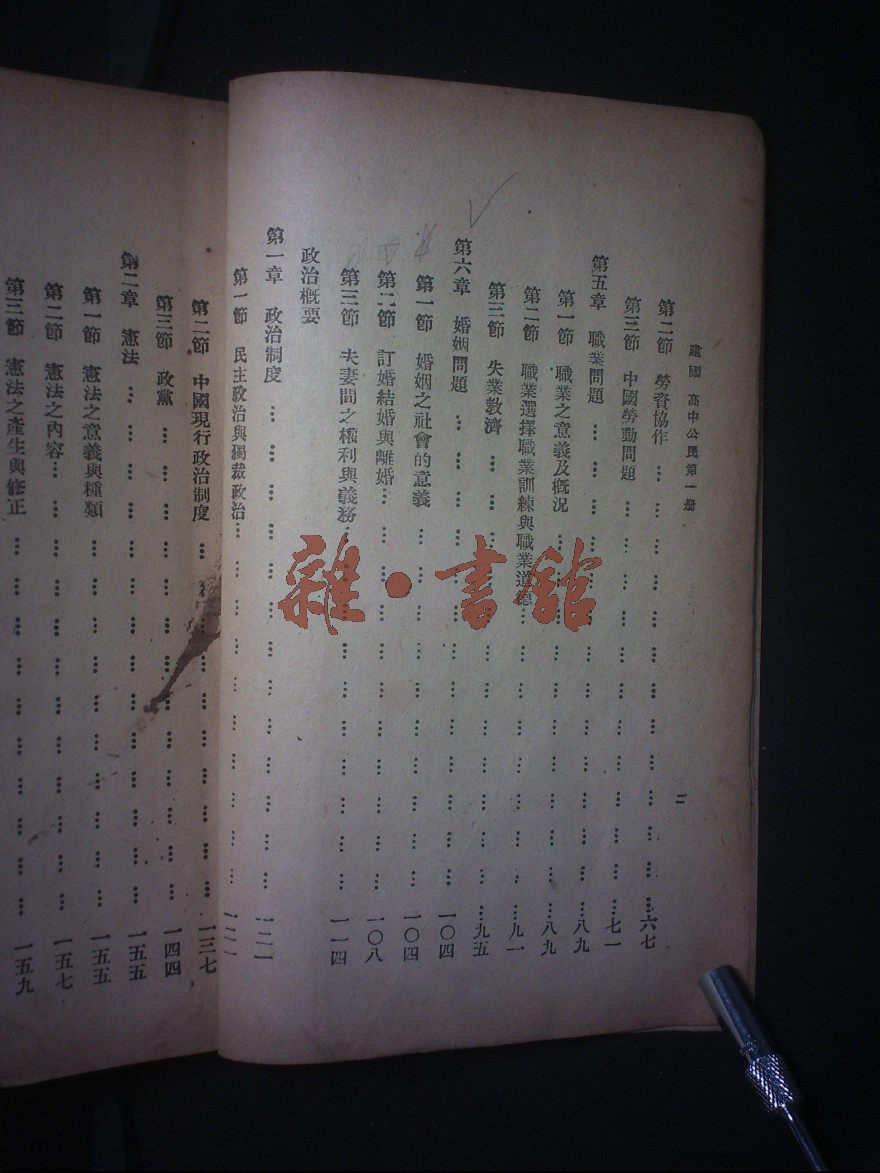 建國 高中公民第一册
二
第二節 勞資協作……………………………六七
第三節 中國勞動問題……………………………七一
第五章 職業問題……………………………八九
第一節 職業之意義及概況……………………………八九
第二節 職業選擇職業訓練與職業道德……………………………九一
第三節 失業救濟……………………………九五
第六章 婚姻問題……………………………一〇四
第一節 婚姻之社會的意義……………………………一〇四
第二節 訂婚結婚與離婚……………………………一〇八
第三節 夫妻間之權利與義務……………………………一一四
政治概要
第一章 政治制度……………………………一二一
第一節 民主政治與獨裁政治……………………………一二一
第二節 中國現行政治制度……………………………一三七
第三節 政黨……………………………一四四
第二章 憲法……………………………一五五
第一節 憲法之意義與種類……………………………一五五
第二節 憲法之內容……………………………一五七
第三節 憲法之產生與修正……………………………一五九
雜·書館